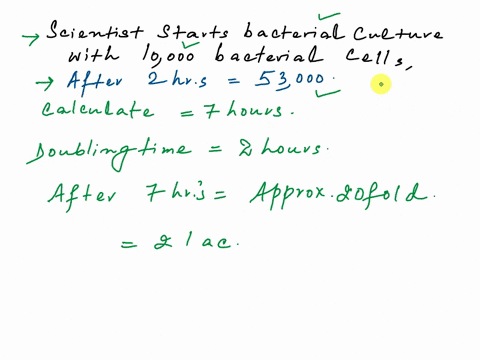 → Scientist starts bacterial culture
with 10,000 bacterial cells,
→ After 2 hr.s = 53,000.
Calculate = 7 hours.
Doubling time = 2 hours.
After 7 hr.'s = Approx. 20 fold.
= 2 lac.